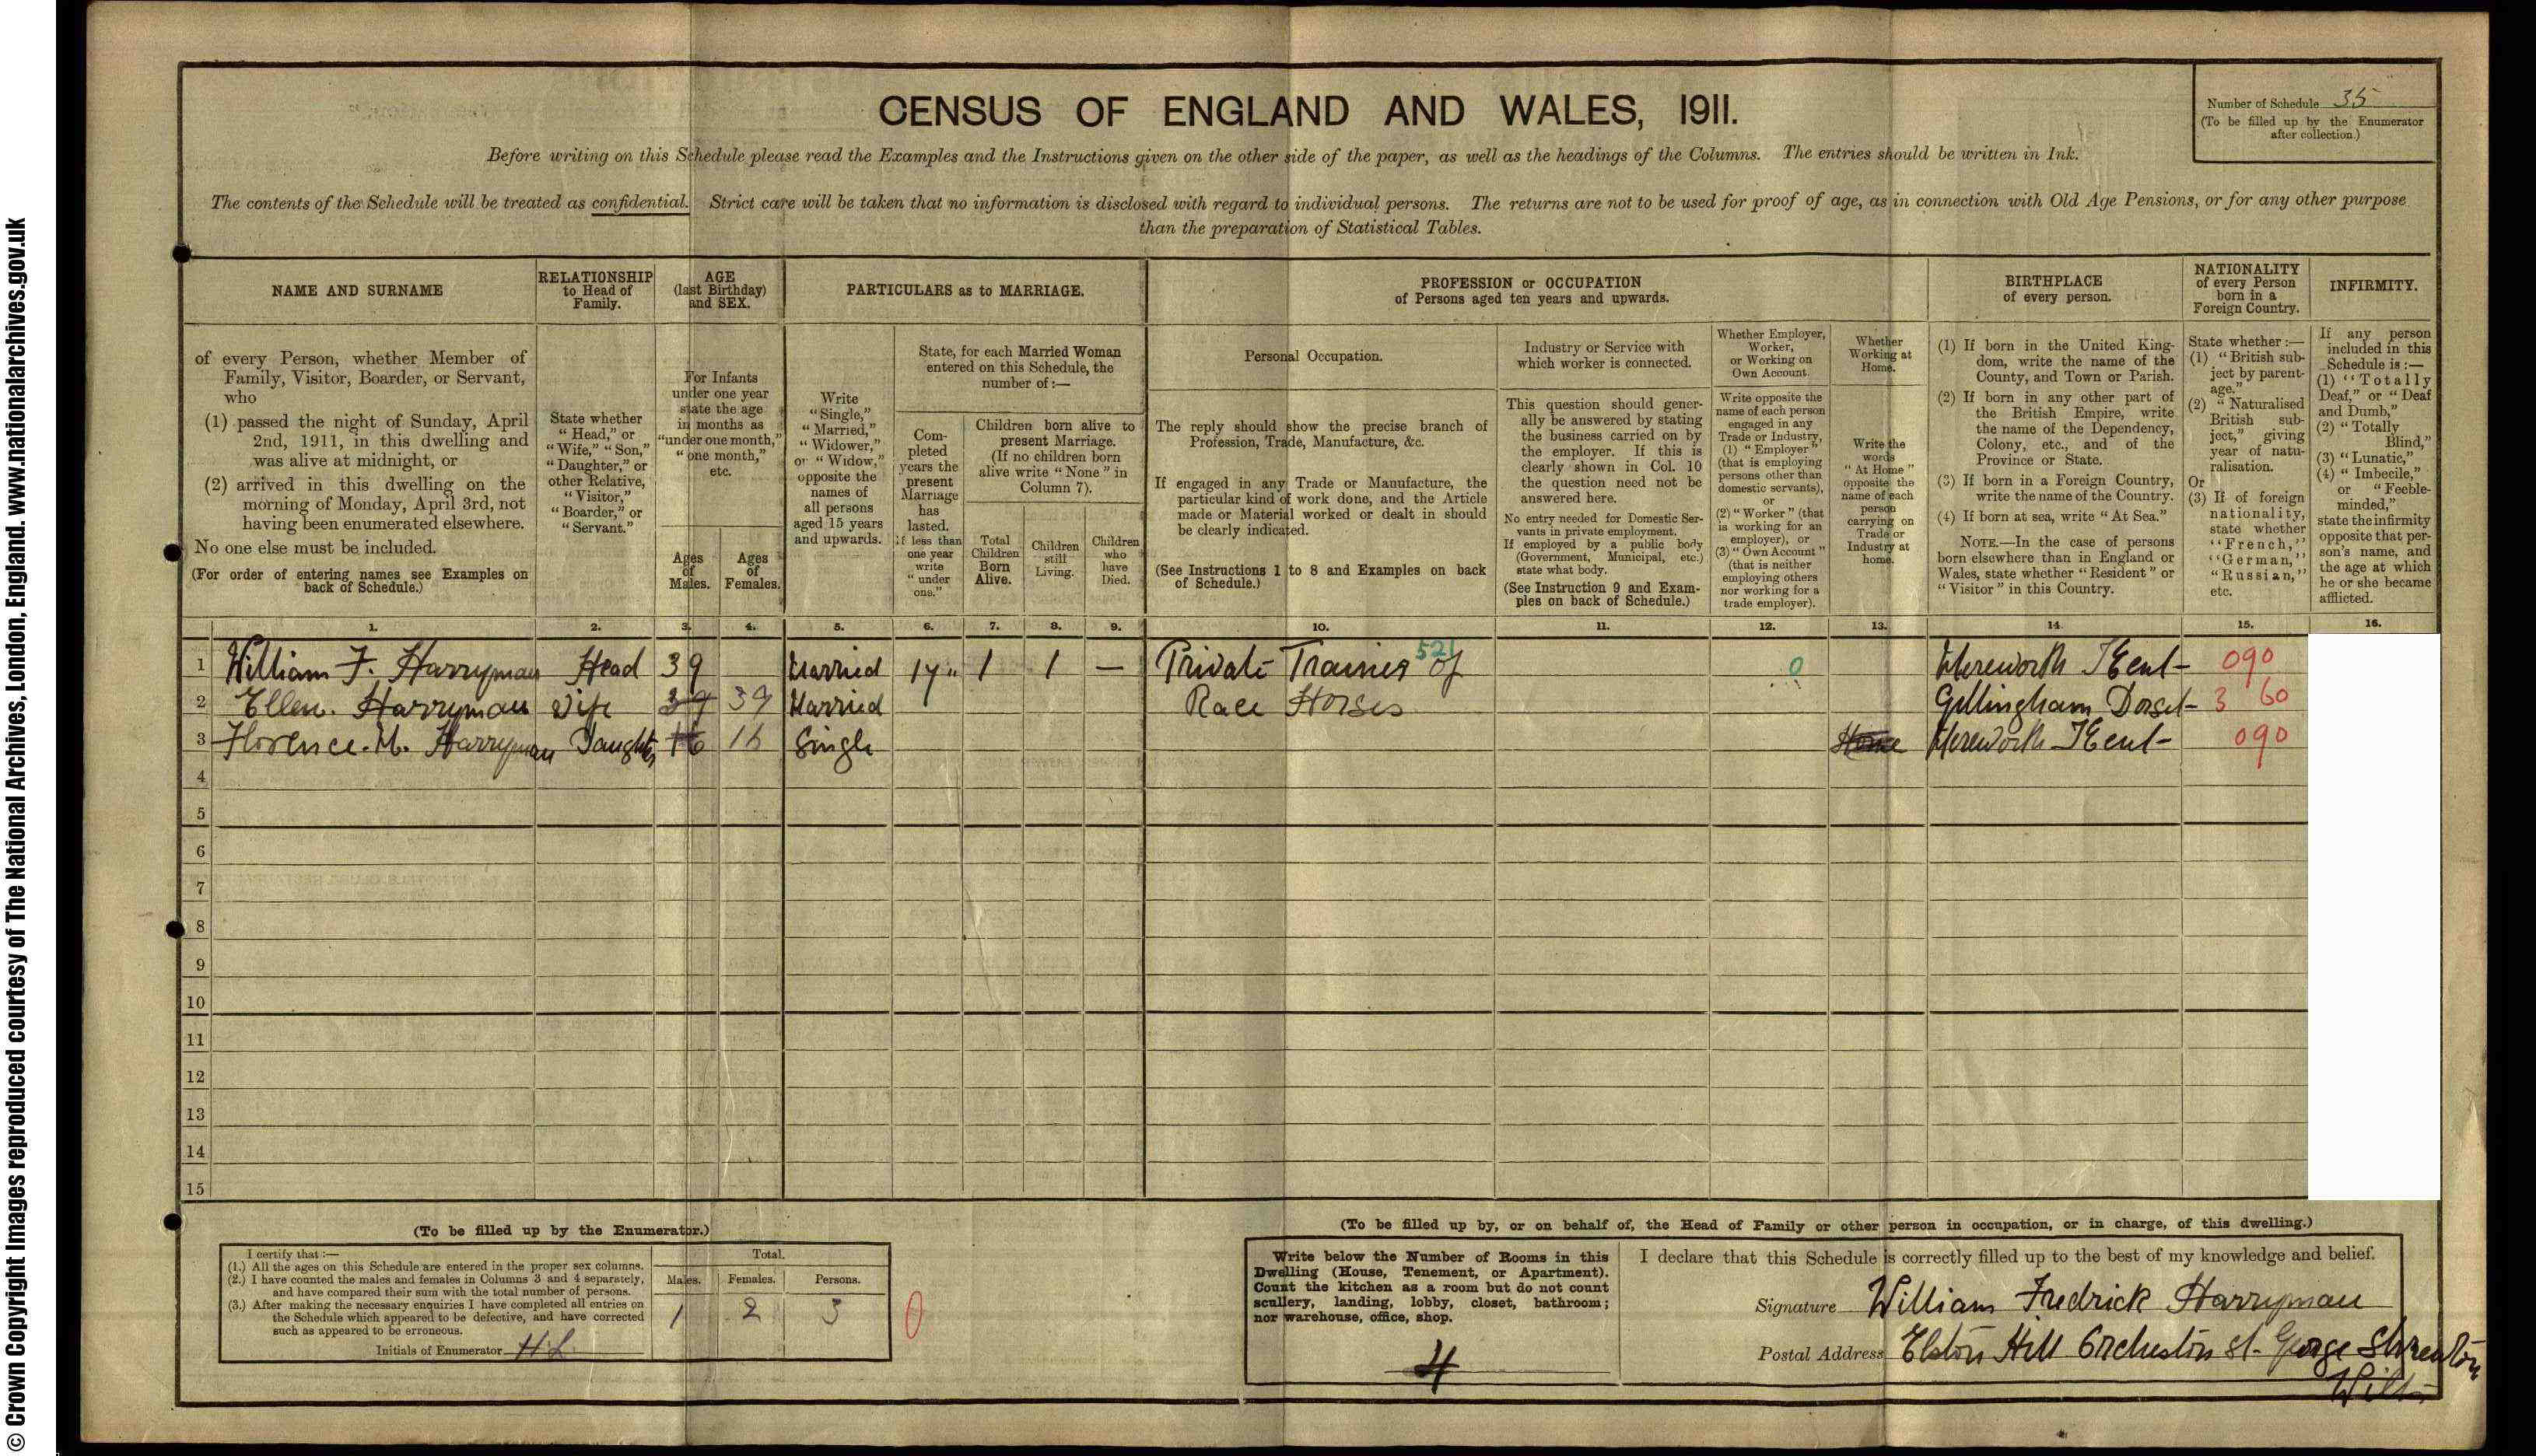 © Crown Copyright Images reproduced courtesy of The National Archives, London, England. www.nationalarchives.gov.uk
CENSUS OF ENGLAND AND WALES, 1911.
Number of Schedule 35
(To be filled up by the Enumerator
after collection.)
Before writing on this Schedule please read the Examples and the Instructions given on the other side of the paper, as well as the headings of the Columns. The entries should be written in Ink.
The contents of the Schedule will be treated as confidential. Strict care will be taken that no information is disclosed with regard to individual persons. The returns are not to be used for proof of age, as in connection with Old Age Pensions, or for any other purpose
than the preparation of Statistical Tables.
NAME AND SURNAME
of every Person, whether Member of
Family, Visitor, Boarder, or Servant,
who
(1) passed the night of Sunday, April
2nd, 1911, in this dwelling and
was alive at midnight, or
(2) arrived in this dwelling on the
morning of Monday, April 3rd, not
having been enumerated elsewhere.
No one else must be included.
(For order of entering names see Examples on
back of Schedule.)
RELATIONSHIP
to Head of
Family.
State whether
"Head," or
"Wife," "Son,"
"Daughter," or
other Relative,
"Visitor,"
"Boarder," or
"Servant."
AGE
(last Birthday)
and SEX.
For Infants
under one year
state the age
in months as
"under one month,"
"one month,"
etc.
Ages
of
Males.
Ages
of
Females.
PARTICULARS as to MARRIAGE.
Write
"Single,"
"Married,"
"Widower,"
or "Widow,"
opposite the
names of
all persons
aged 15 years
and upwards.
State, for each Married Woman
entered on this Schedule, the
number of:—
Com-
pleted
years the
present
Marriage
has
lasted.
If less than
one year
write
"under
one."
Children born alive to
present Marriage.
(If no children born
alive write "None" in
Column 7).
Total
Children
Born
Alive.
Children
still
Living.
Children
who
have
Died.
PROFESSION or OCCUPATION
of Persons aged ten years and upwards.
Personal Occupation.
The reply should show the precise branch of
Profession, Trade, Manufacture, &c.
If engaged in any Trade or Manufacture, the
particular kind of work done, and the Article
made or Material worked or dealt in should
be clearly indicated.
(See Instructions 1 to 8 and Examples on back
of Schedule.)
Industry or Service with
which worker is connected.
This question should gener-
ally be answered by stating
the business carried on by
the employer. If this is
clearly shown in Col. 10
the question need not be
answered here.
No entry needed for Domestic Ser-
vants in private employment.
If employed by a public body
(Government, Municipal, etc.)
state what body.
(See Instruction 9 and Exam-
ples on back of Schedule.)
Whether Employer,
Worker,
or Working on
Own Account.
Write opposite the
name of each person
engaged in any
Trade or Industry,
(1) "Employer"
(that is employing
persons other than
domestic servants),
or
(2) "Worker" (that
is working for an
employer), or
(3) "Own Account"
(that is neither
employing others
nor working for a
trade employer).
Whether
Working at
Home.
Write the
words
"At Home"
opposite the
name of each
person
carrying on
Trade or
Industry at
home.
BIRTHPLACE
of every person.
(1) If born in the United King-
dom, write the name of the
County, and Town or Parish.
(2) If born in any other part of
the British Empire, write
the name of the Dependency,
Colony, etc., and of the
Province or State.
(3) If born in a Foreign Country,
write the name of the Country.
(4) If born at sea, write "At Sea."
NOTE.—In the case of persons
born elsewhere than in England or
Wales, state whether "Resident" or
"Visitor" in this Country.
NATIONALITY
of every Person
born in a
Foreign Country.
State whether:—
(1) "British sub-
ject by parent-
age."
(2) "Naturalised
British sub-
ject," giving
year of natu-
ralisation.
Or
(3) If of foreign
nationality,
state whether
"French,"
"German,"
"Russian,"
etc.
INFIRMITY.
If any person
included in this
Schedule is:—
(1) "Totally
Deaf," or "Deaf
and Dumb,"
(2) "Totally
Blind,"
(3) "Lunatic,"
(4) "Imbecile,"
or "Feeble-
minded,"
state the infirmity
opposite that per-
son's name, and
the age at which
he or she became
afflicted.
1. 2. 3. 4. 5. 6. 7. 8. 9. 10. 11. 12. 13. 14. 15. 16.
1 William F. Harryman Head 39 Married 17 1 1 — Private Trainer of 521 0 Mereworth Kent 090
2 Ellen. Harryman Wife 39 39 Married Race Horses Gillingham Dorset 3 60
3 Florence. M. Harryman Daughter 16 16 Single Home Mereworth Kent 090
4
5
6
7
8
9
10
11
12
13
14
15
(To be filled up by the Enumerator.)
I certify that:—
(1.) All the ages on this Schedule are entered in the proper sex columns.
(2.) I have counted the males and females in Columns 3 and 4 separately,
and have compared their sum with the total number of persons.
(3.) After making the necessary enquiries I have completed all entries on
the Schedule which appeared to be defective, and have corrected
such as appeared to be erroneous.
Initials of Enumerator H.L.
Total.
Males. Females. Persons.
1 2 3
0
(To be filled up by, or on behalf of, the Head of Family or other person in occupation, or in charge, of this dwelling.)
Write below the Number of Rooms in this
Dwelling (House, Tenement, or Apartment).
Count the kitchen as a room but do not count
scullery, landing, lobby, closet, bathroom;
nor warehouse, office, shop.
4
I declare that this Schedule is correctly filled up to the best of my knowledge and belief.
Signature William Fredrick Harryman
Postal Address Elston Hill Orcheston St. George Shrewton
Wilts